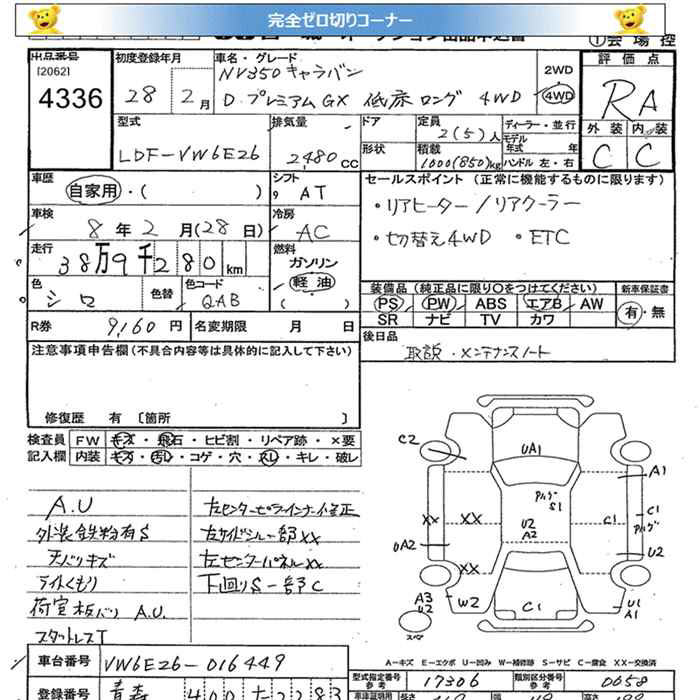 完全ゼロ切りコーナー
①会場控
出品番号
[2062]
4336
初度登録年月
28年2月
車名・グレード
NV350キャラバン
D.プレミアムGX 低床ロング 4WD
2WD
4WD
評価点
RA
外装 内装
C C
型式
LDF-VW6E26
排気量
2,480CC
ドア
形状
定員
2(5)人
積載
1000(850)kg
ディーラー・並行
モデル年式 年
ハンドル 左・右
車歴
自家用・( )
シフト
9 AT
セールスポイント (正常に機能するものに限ります)
・リアヒーター/リアクーラー
・切替え4WD ・ETC
車検
8年2月(28日)
冷房
AC
走行
38万9千280km
燃料
ガソリン
軽油
色
シロ
色替
色コード
QAB
装備品 (純正品に限り○をつけてください)
PS PW ABS エアB AW
SR ナビ TV カワ
新車保証書
有・無
R券
9,160円
名変期限 月 日
後日品
取説・メンテナンスノート
注意事項申告欄(不具合内容等は具体的に記入して下さい)
修復歴 有 〔箇所 〕
検査員記入欄
FW キズ・飛石・ヒビ割・リペア跡・×要
内装 キズ・汚レ・コゲ・穴・スレ・キレ・破レ
A.U
外装鉄粉有S
天バリキズ
ライトくもり
荷室板バリ A.U.
スタットレスT
左センターピラーインナー修正
左サイドシル一部XX
左センターパネルXX
下回りS 一部C
C2
UA1
A1
アルグ
S1
XX
XX
U2
A2
C1
C1
アルグ
UA2
U2
XX
A3
U2
W2
C1
U1
A1
スペア
A-キズ E-エクボ U-凹み W-補修跡 S-サビ C-腐食 XX-交換済
車台番号
VW6E26-016449
型式指定番号
参考
17306
類別区分番号
参考
0058
登録番号
青森 400 せ 2283
長さ